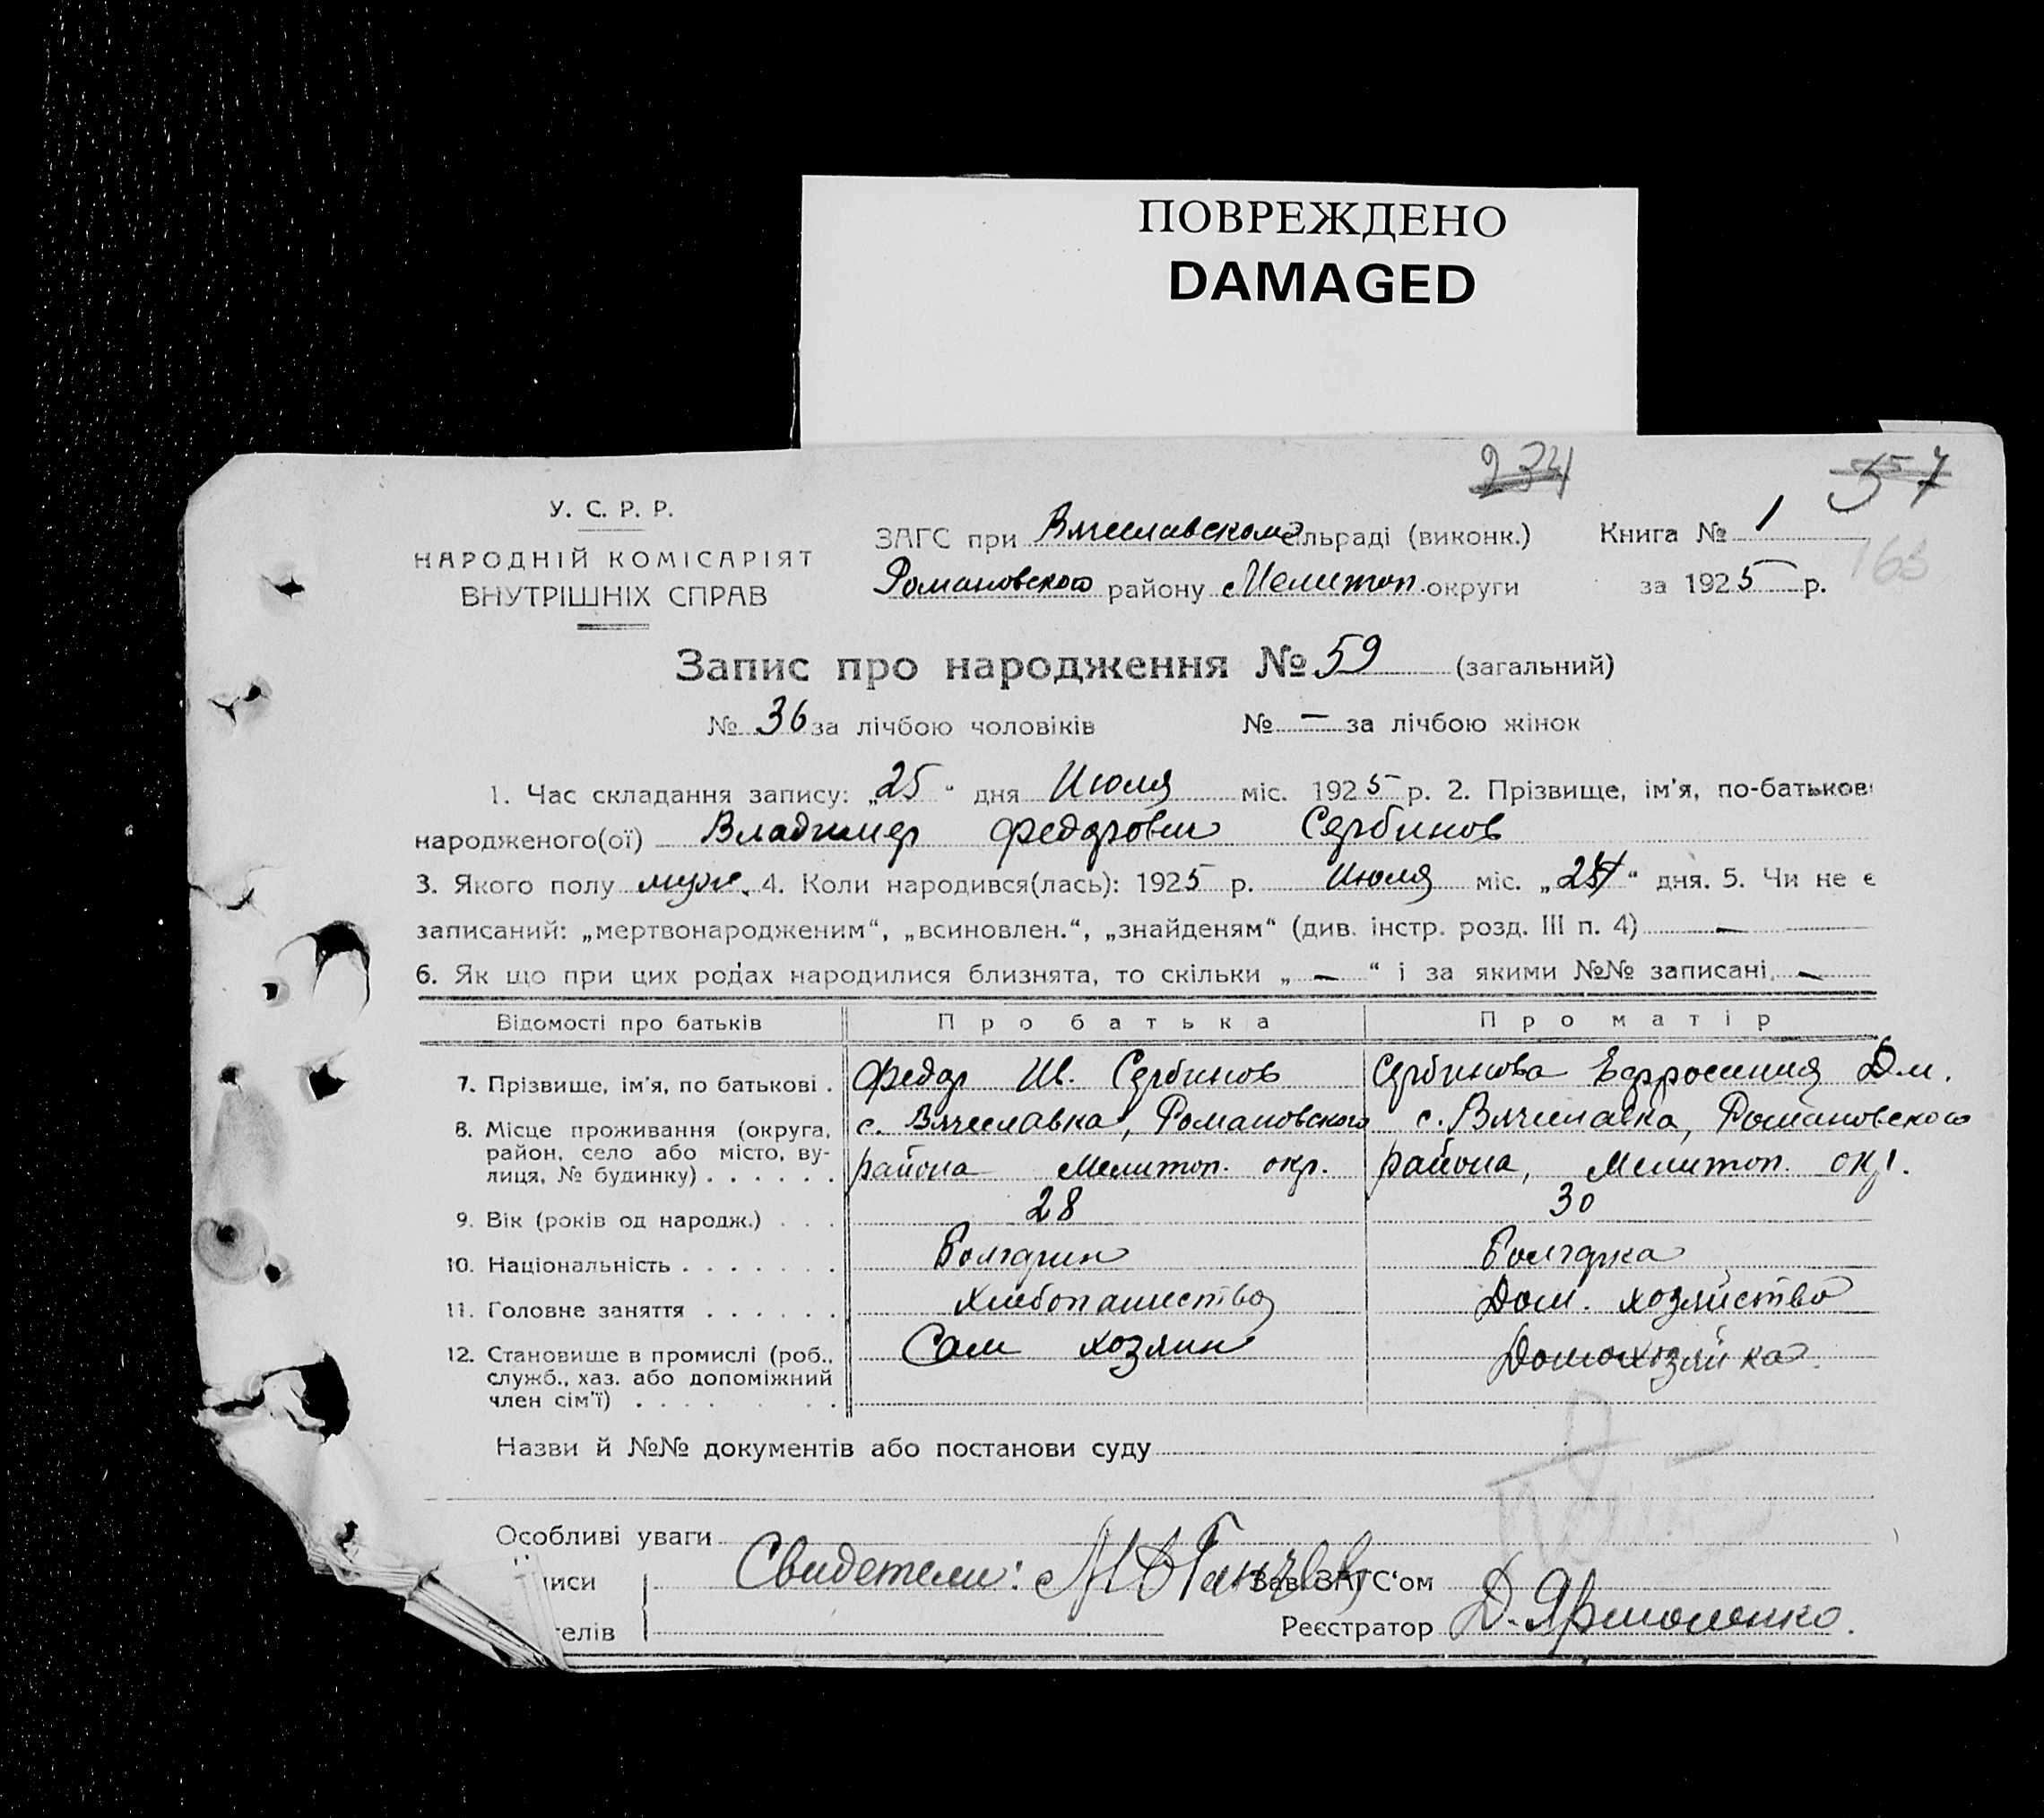 ПОВРЕЖДЕНО
DAMAGED
234
557
У. С. Р. Р.
НАРОДНІЙ КОМІСАРІЯТ
ВНУТРІШНІХ СПРАВ
ЗАГС при Вячеславском сільраді (виконк.) Книга № 1
163
Романовского району Мелитоп. округи за 1925 р.
Запис про народження № 59 (загальний)
№ 36 за лічбою чоловіків № — за лічбою жінок
1. Час складання запису: „25“ дня Июля міс. 1925 р. 2. Прізвище, ім'я, по-батькові
народженого(ої) Владимер Федорович Сербинов
3. Якого полу муж. 4. Коли народився(лась): 1925 р. Июля міс. „24“ дня. 5. Чи не є
записаний: „мертвонародженим“, „всиновлен.“, „знайденям“ (див. інстр. розд. III п. 4) —
6. Як що при цих родах народилися близнята, то скільки „ — “ і за якими №№ записані —
Відомості про батьків Про батька Про матір
7. Прізвище, ім'я, по батькові . Федор Ив. Сербинов Сербинова Ефросиния Дм.
8. Місце проживання (округа, район, село або місто, вулиця, № будинку) . . . . . . с. Вячеславка, Романовского района Мелитоп. окр. с. Вячеславка, Романовского района, Мелитоп. окр.
9. Вік (років од народж.) . . . 28 30
10. Національність . . . . . . . Болгарин Болгарка
11. Головне заняття . . . . . . Хлебопашество Дом. хозяйство
12. Становище в промислі (роб., служб., хаз. або допоміжний член сім'ї) . . . . . . . . Сам хозяин Домохозяйка.
Назви й №№ документів або постанови суду
Особливі уваги
иси Свидетели: Зав. ЗАГС‘ом
телів Реєстратор Д. Ярмоленко.